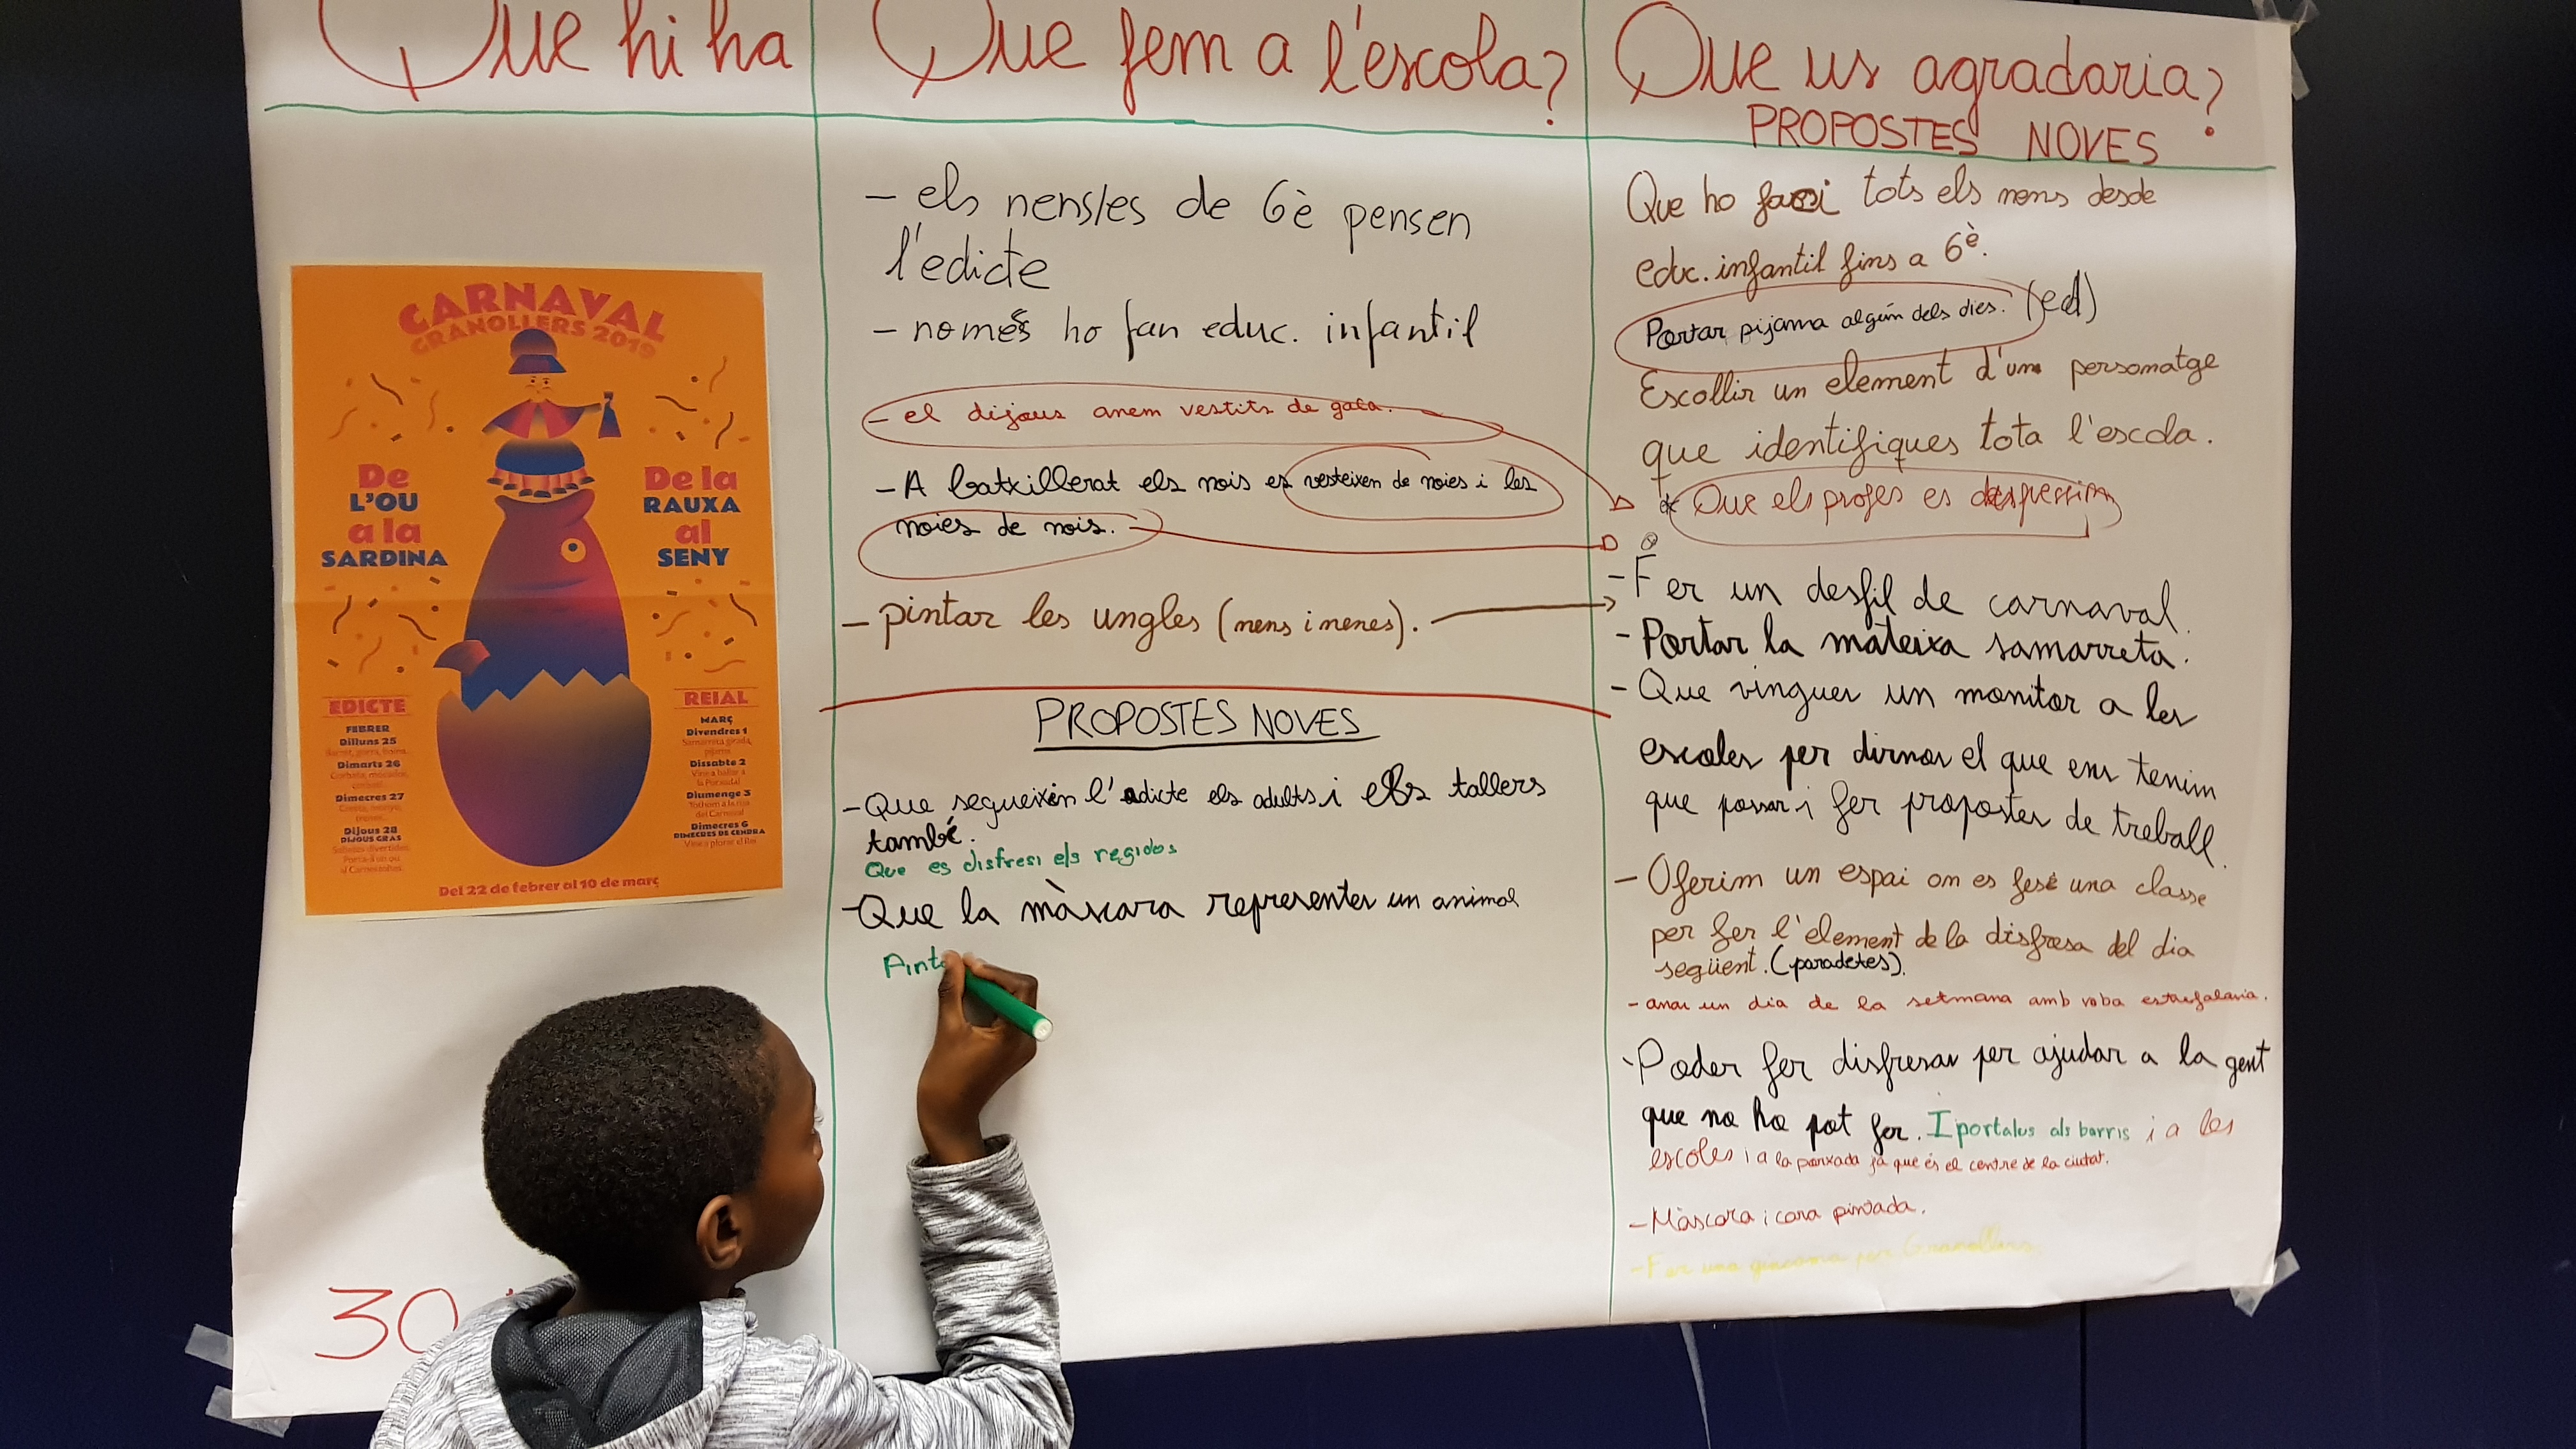 Que hi ha
CARNAVAL
GRANOLLERS 2019
De
L'OU
a la
SARDINA
De la
RAUXA
al
SENY
EDICTE
FEBRER
Dilluns 25
Dimarts 26
Dimecres 27
Dijous 28
DIJOUS GRAS
REIAL
MARÇ
Divendres 1
Dissabte 2
Vine a ballar a
la Porxada!
Diumenge 3
del Carnaval
Dimecres 6
DIMECRES DE CENDRA
Vine a plorar el Rei
Del 22 de febrer al 10 de març
30
Que fem a l'escola?
- els nens/es de 6è pensen
l'edicte
- només ho fan educ. infantil
- el dijous anem vestits de gala.
- A batxillerat els nois es vesteixen de noies i les
noies de nois.
- pintar les ungles (nens i nenes).
PROPOSTES NOVES
- Que segueixin l'adicte els adults i els tallers
també.
Que es disfresi els regidos
- Que la màscara representes un animal
Pint
Que us agradaria?
PROPOSTES NOVES
Que ho faci tots els nens desde
educ. infantil fins a 6è.
Portar pijama algún dels dies. (ed)
Escollir un element d'un personatge
que identifiques tota l'escola.
* Que els profes es
- Fer un desfil de carnaval.
- Portar la mateixa samarreta.
- Que vingues un monitor a les
escoles per dirnos el que ens tenim
que possar i fer propostes de treball.
- Oferim un espai on es fesé una classe
per fer l'element de la disfresa del dia
següent. (paradetes).
- anar un dia de la setmana amb roba estrafalaria.
- Poder fer disfreses per ajudar a la gent
que no ho pot fer. I portalus als barris i a les
escoles i a la porxada ja que és el centre de la ciutat.
- Màscara i cara pintada.
- Fer una gincama per Granollers.